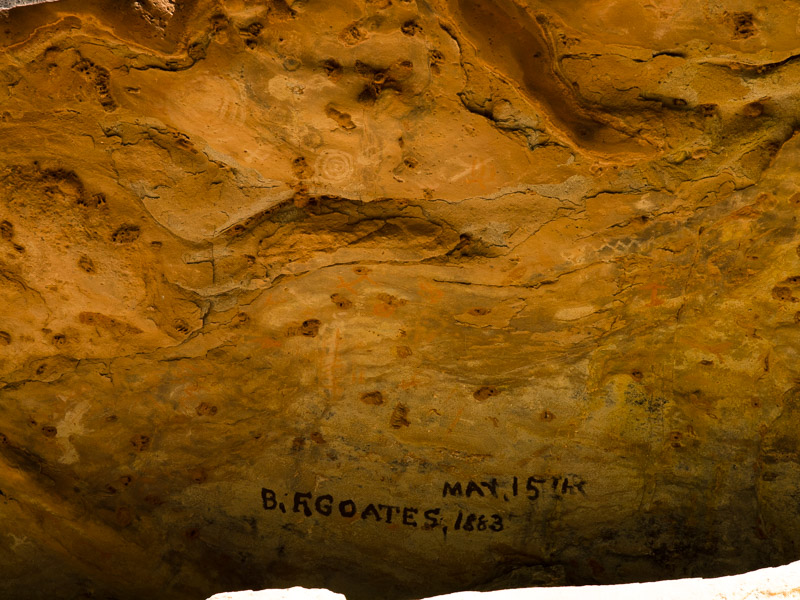 MAY. 15TH
B. F. GOATES, 1883